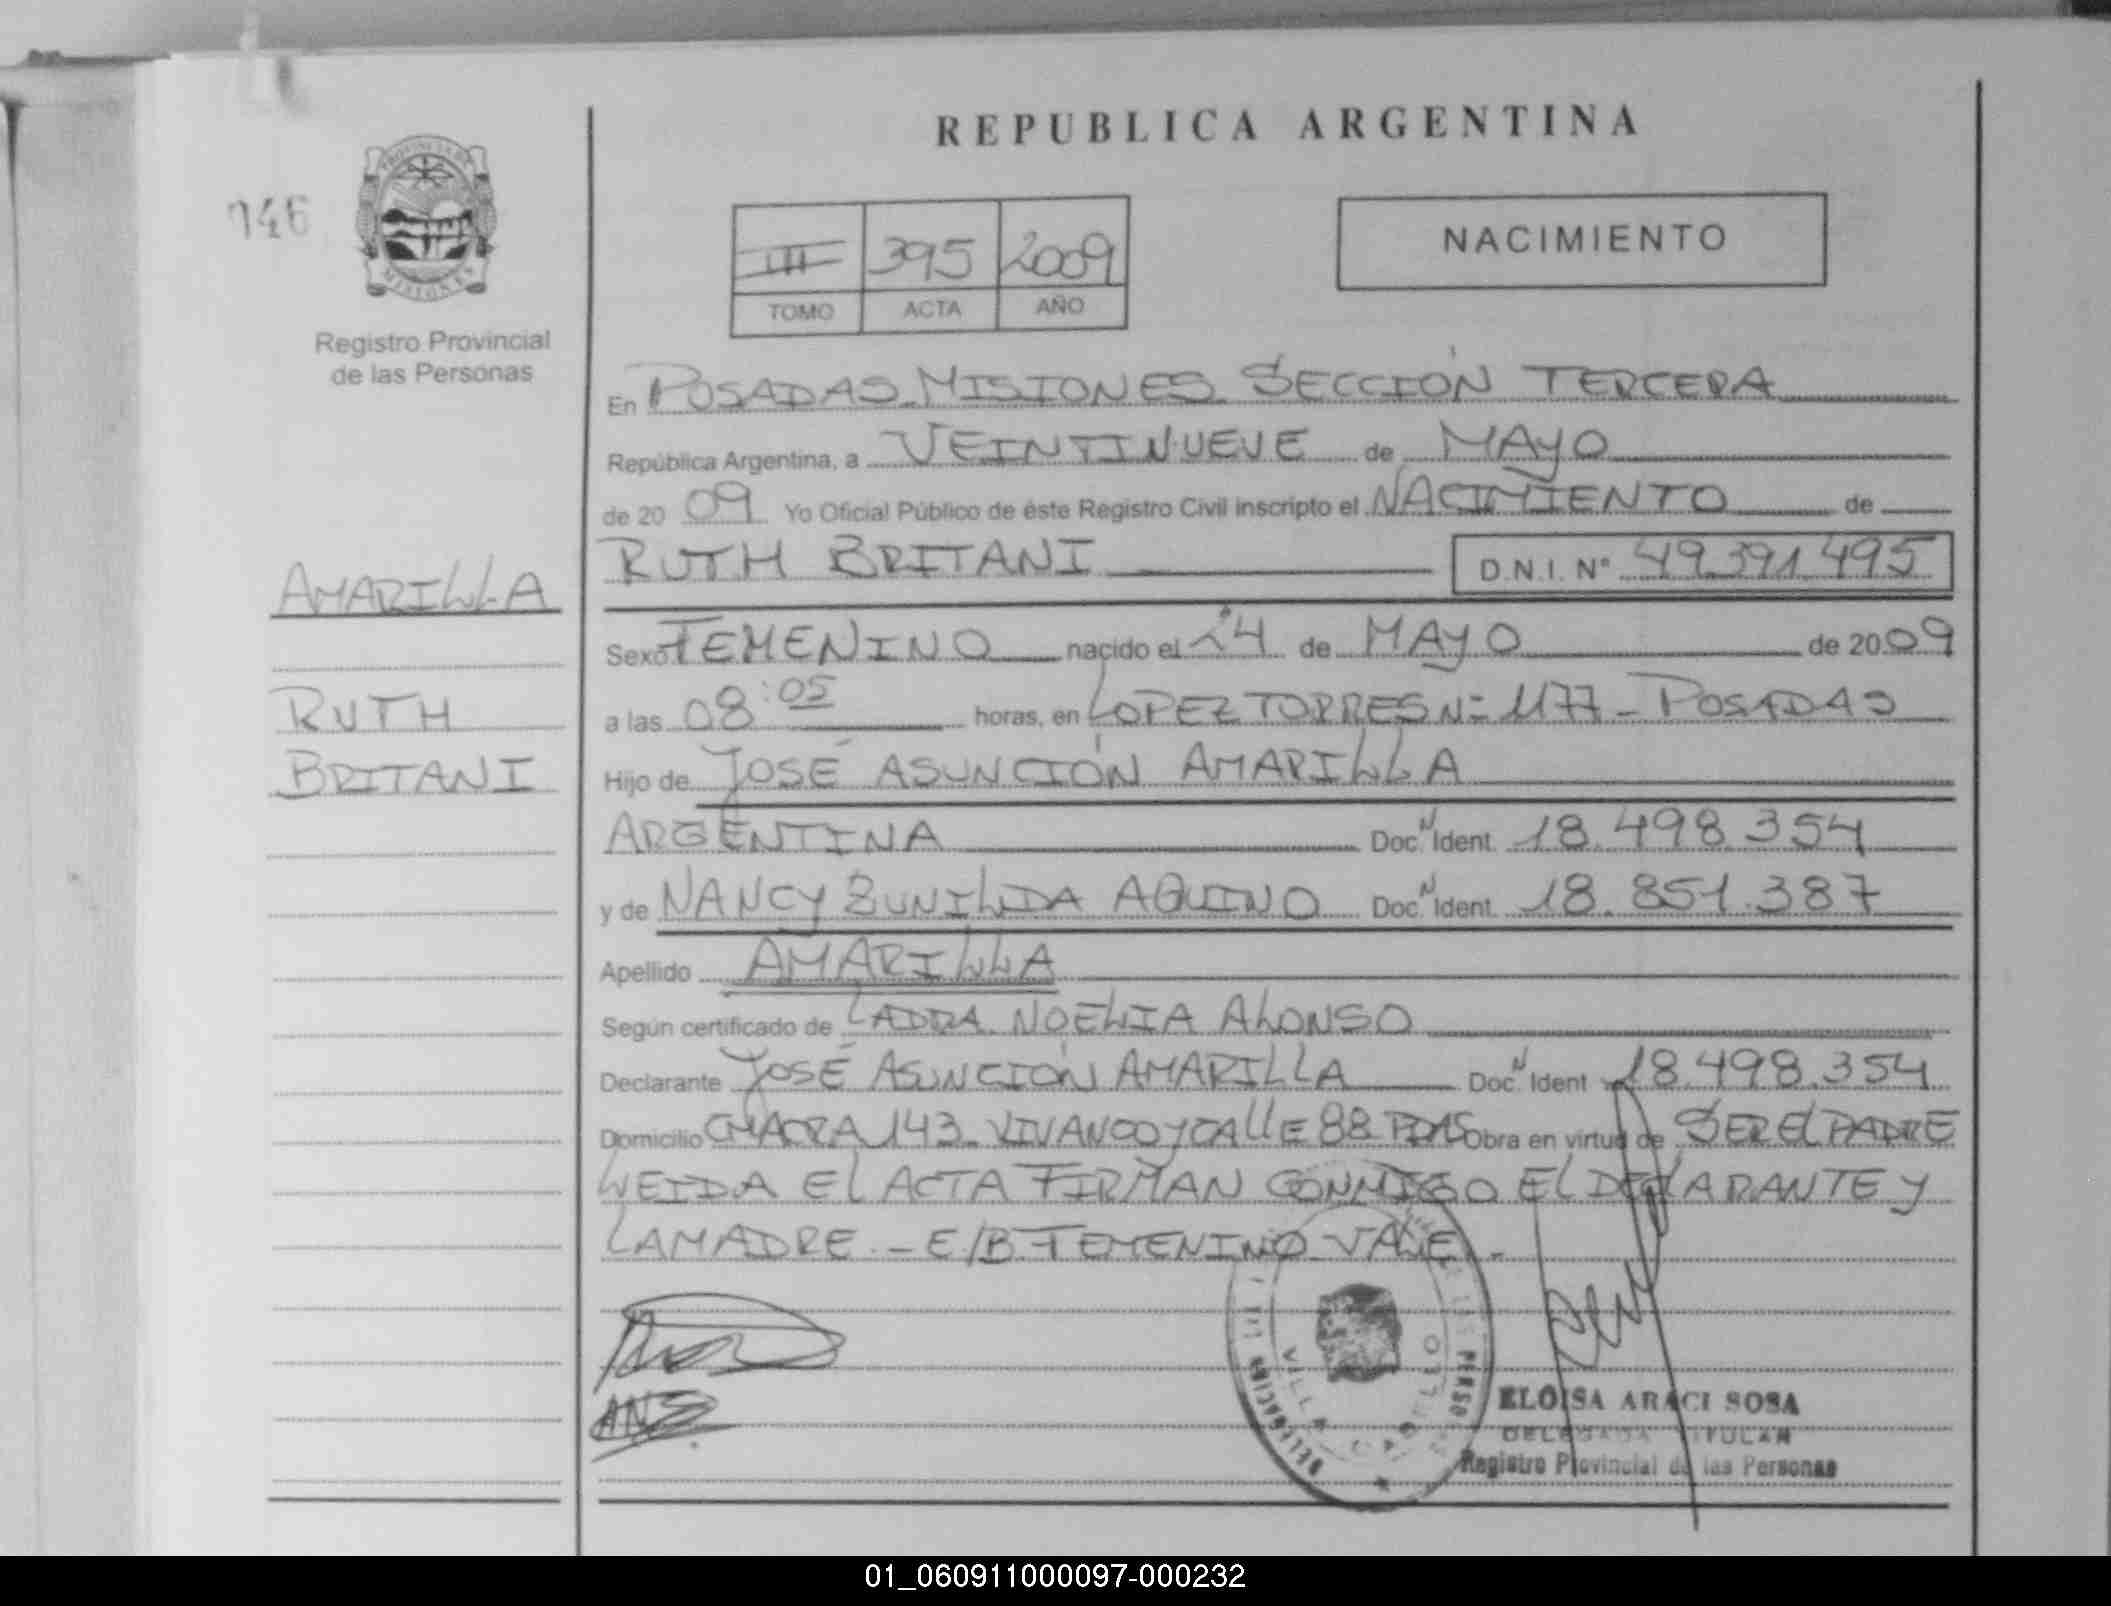 REPUBLICA ARGENTINA
146
PROVINCIA DE
MISIONES
Registro Provincial
de las Personas
III 395 2009
TOMO ACTA AÑO
NACIMIENTO
En POSADAS MISIONES SECCIÓN TERCERA
República Argentina, a VEINTINUEVE de MAYO
de 20 09 Yo Oficial Público de éste Registro Civil inscripto el NACIMIENTO de
AMARILLA
RUTH BRITANI D.N.I. Nº 49.391.495
Sexo FEMENINO nacido el 24 de MAYO de 2009
RUTH
a las 08:05 horas, en LOPEZ TORRES Nº 1177 - POSADAS
BRITANI
Hijo de JOSÉ ASUNCIÓN AMARILLA
ARGENTINA Doc. N Ident. 18.498.354
y de NANCY ZUNILDA AQUINO Doc. N Ident. 18.851.387
Apellido AMARILLA
Según certificado de LADRA. NOELIA ALONSO
Declarante JOSÉ ASUNCIÓN AMARILLA Doc. N Ident 18.498.354
Domicilio CHACRA 143. VIVANCO Y CALLE 88 PDAS Obra en virtud de SER EL PADRE
LEIDA EL ACTA FIRMAN CONMIGO EL DECLARANTE Y
LA MADRE. - E/B FEMENINO VALE. -
VILLA CABELLO
ELOISA ARACI SOSA
DELEGADA TITULAR
Registro Provincial de las Personas
01_060911000097-000232